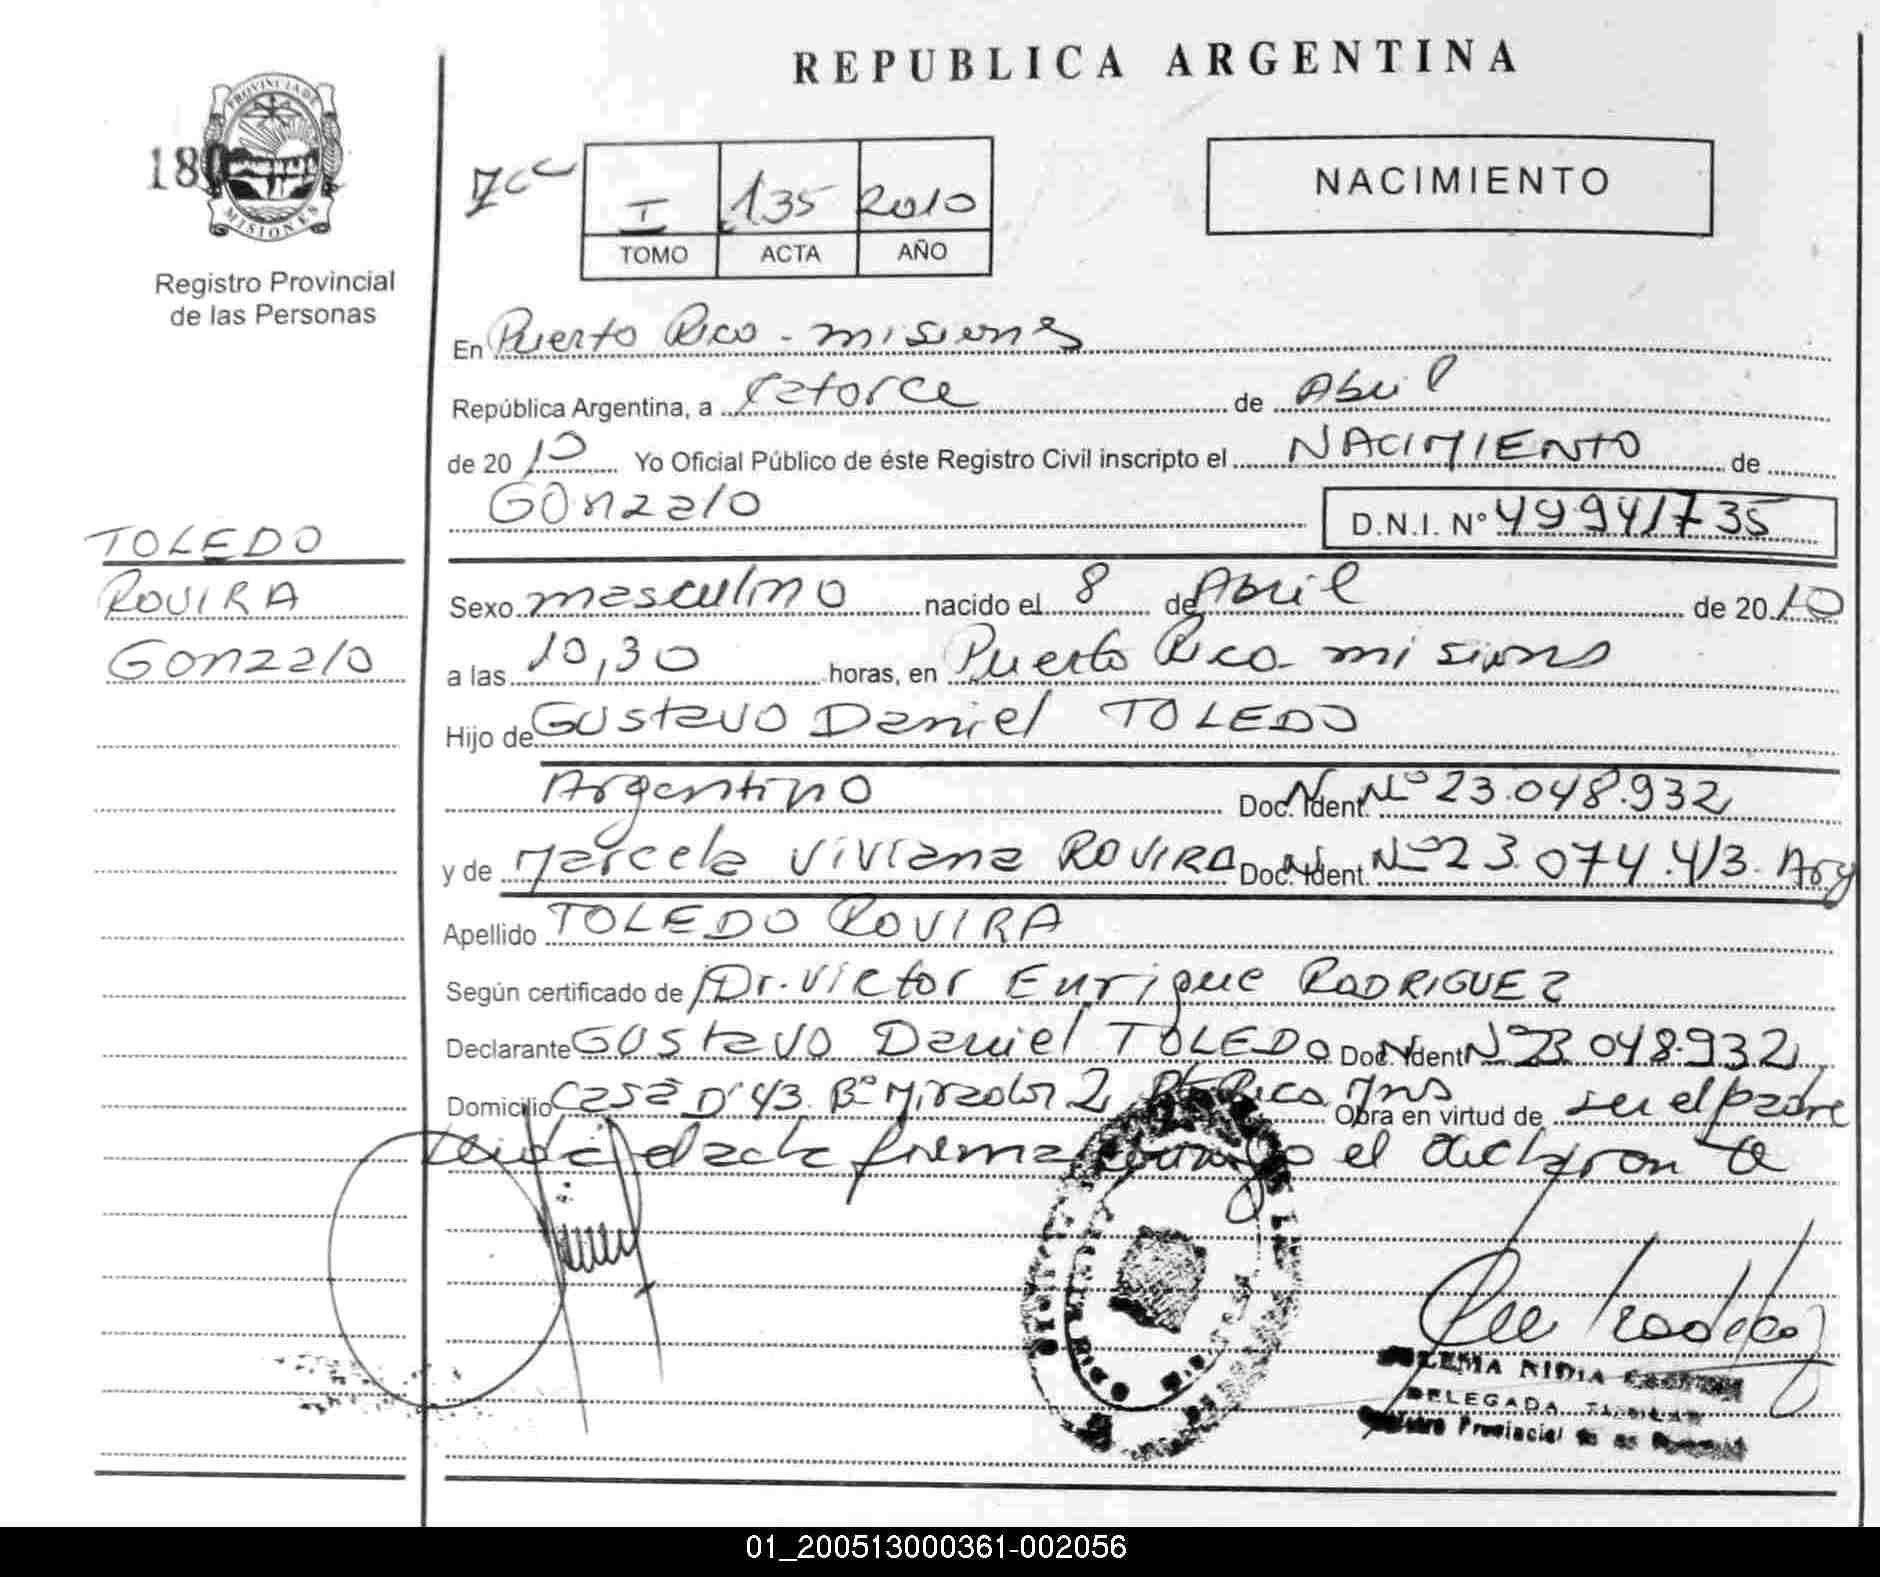 REPUBLICA ARGENTINA
PROVINCIA DE
MISIONES
Registro Provincial
de las Personas
I 135 2010
TOMO ACTA AÑO
NACIMIENTO
En Puerto Rico - misiones
República Argentina, a Catorce de Abril
de 20 10 Yo Oficial Público de éste Registro Civil inscripto el NACIMIENTO de
Gonzalo D.N.I. N° 49941735
TOLEDO
ROVIRA
Gonzalo
Sexo masculino nacido el 8 de Abril de 20 10
a las 10,30 horas, en Puerto Rico - misiones
Hijo de Gustavo Daniel TOLEDO
Argentino Doc. Ident. N° 23.048.932
y de Marcela Viviana ROVIRA Doc. Ident. N° 23.074.413. Arg
Apellido TOLEDO ROVIRA
Según certificado de Dr. Victor Enrique RODRIGUEZ
Declarante Gustavo Daniel TOLEDO Doc. Ident N° 23.048.932
Domicilio Casa D' 43. B° Mirador 2, Pto Rico Mns Obra en virtud de ser el padre
Leida el acta firma conmigo el declarante
DELEGADA TITULAR
Registro Provincial de las Personas
01_200513000361-002056